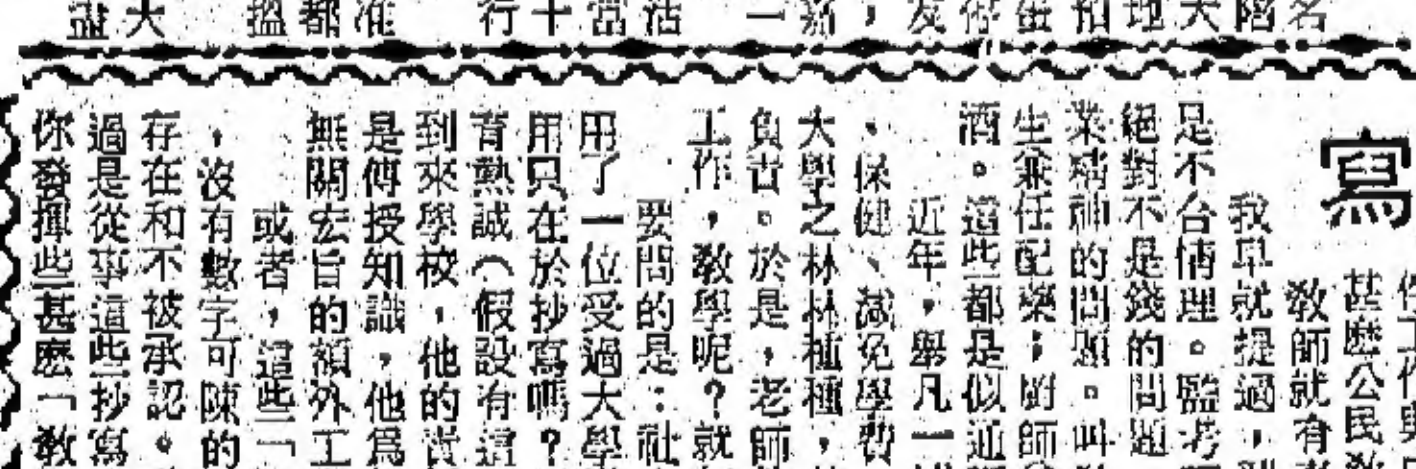 寫
甚麼公民教
教師就有
我早就提過，
足不合情理。監考
絕對不是錢的問題
業精神的問題。叫
生兼任配藥；廚師
酒。這些都是似
近年，舉凡一
、保健、減免學費
大學之林林種種，
負責。於是，老師
工作，教學呢？就
要問的是：社
用了一位受過大學
用只在於抄寫嗎？
有熱誠（假設有這
到來學校，他的責
是傳授知識，他為
無關宏旨的額外工
或者，這些「
，沒有數字可陳的
存在和不被承認。
過是從事這些抄寫
你發揮些甚麼「教